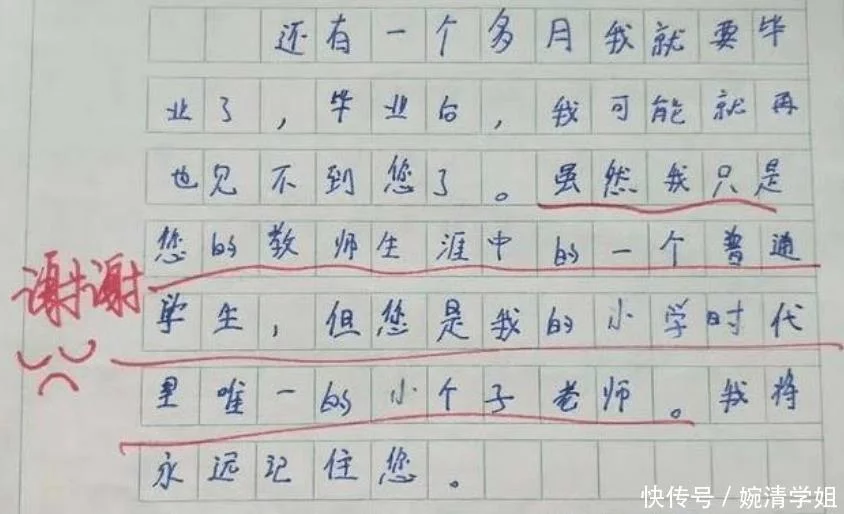 还有一个多月我就要毕
业了，毕业后，我可能就再
也见不到您了。虽然我只是
您的教师生涯中的一个普通
谢谢
学生，但您是我的小学时代
里唯一的小个子老师。我将
永远记住您。
快传号／婉清学姐